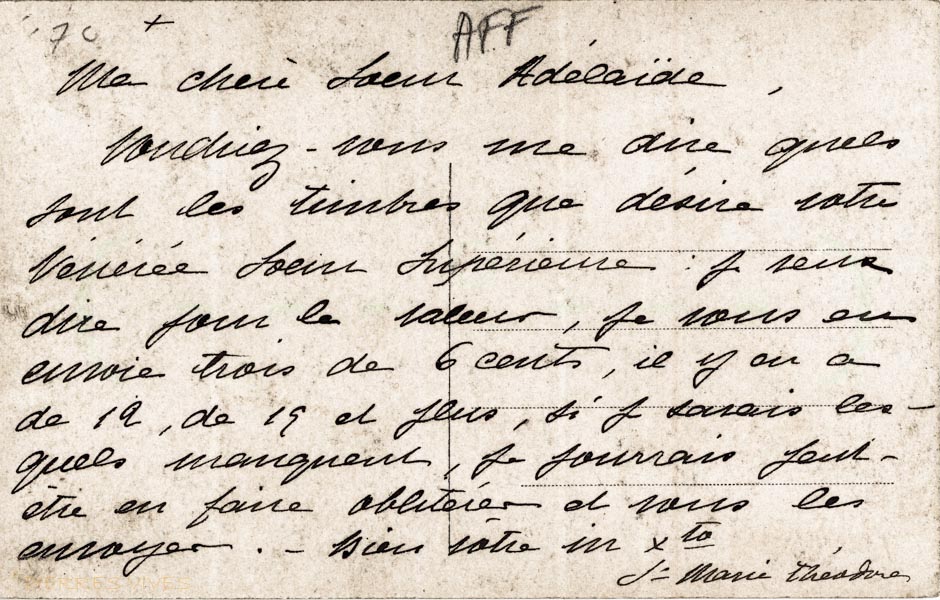 70 + AFF
Ma chère Soeur Adélaïde,
Voudriez-vous me dire quels
sont les timbres que désire votre
Vénérée Soeur Supérieure : je veux
dire pour la valeur, je vous en
envoie trois de 6 cents, il y en a
de 12, de 19 et plus, si je savais les-
quels manquent, je pourrais peut-
être en faire oblitérer et vous les
envoyer. - Bien vôtre in Xto
Sr Marie Théodore